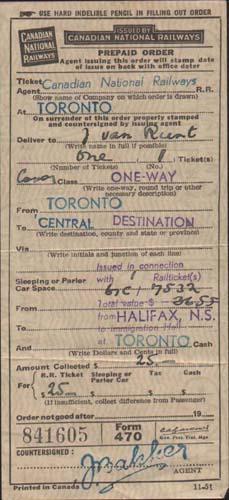 USE HARD INDELIBLE PENCIL IN FILLING OUT ORDER
CANADIAN NATIONAL RAILWAYS
ISSUED BY
CANADIAN NATIONAL RAILWAYS
PREPAID ORDER
Agent issuing this order will stamp date
of issue on back with office dater
Ticket Canadian National Railways
Agent R.R.
(Show name of Company on which order is drawn)
At TORONTO
On surrender of this order properly stamped
and countersigned by issuing agent
Deliver to J van
(Write name in full if possible)
one 1 Ticket(s)
(Number of Tickets) (No.)
Class ONE-WAY
(Write one-way, round trip or other
necessary description)
From TORONTO
To CENTRAL DESTINATION
(Write destination, county and state or province)
Via
(Write initials and junction of each line)
Issued in connection
Sleeping or Parler with 1 Railticket(s)
Car Space 7532
Total value $ 3655
From from HALIFAX, N.S.
To to immigration Hall
at TORONTO Cash
(Write Dollars and Cents in full)
Amount Collected $ 25
R.R. Ticket Sleeping or Parler Car Tax Cash
For $ 25 $ $ $
(If insufficient, collect difference from Passenger)
Order not good after 19
841605
Form
470
Gen. Pass. Trfc. Mgr.
COUNTERSIGNED:
AGENT
Printed in Canada
11-51